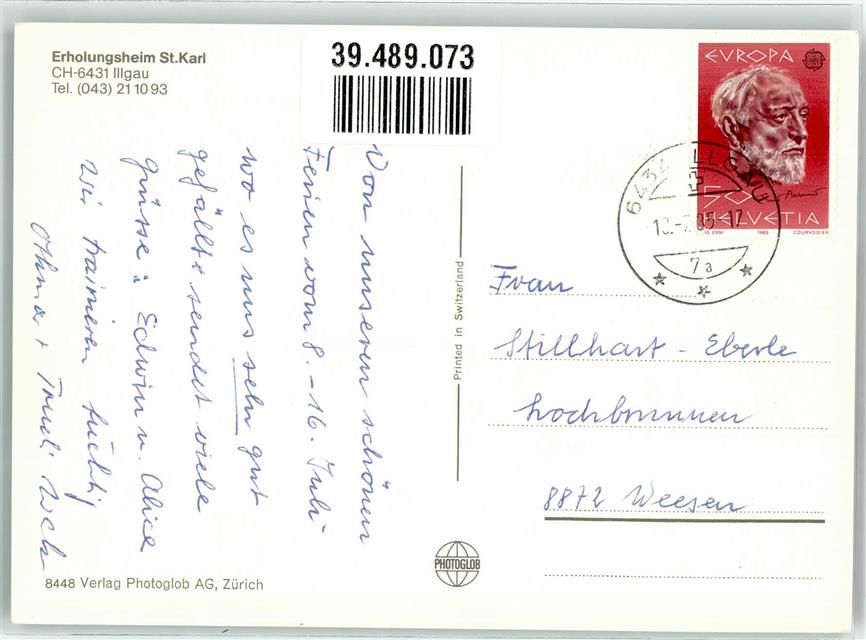 Erholungsheim St.Karl
CH-6431 Illgau
Tel. (043) 21 10 93
39.489.073
EVROPA
50
HELVETIA
H. ERNI 1985 COURVOISIER
6434 ILLGAU
7a
Von unseren schönen
Ferien vom 8. - 16. Juli
wo es uns sehr gut
gefällt sendet viele
Grüsse: Edwin u. Alice
Wir trainieren tüchtig
Othmar + Trudi
Printed in Switzerland
Frau
Stillhart - Eberle
Hochbrunnen
8872 Weesen
PHOTOGLOB
8448 Verlag Photoglob AG, Zürich